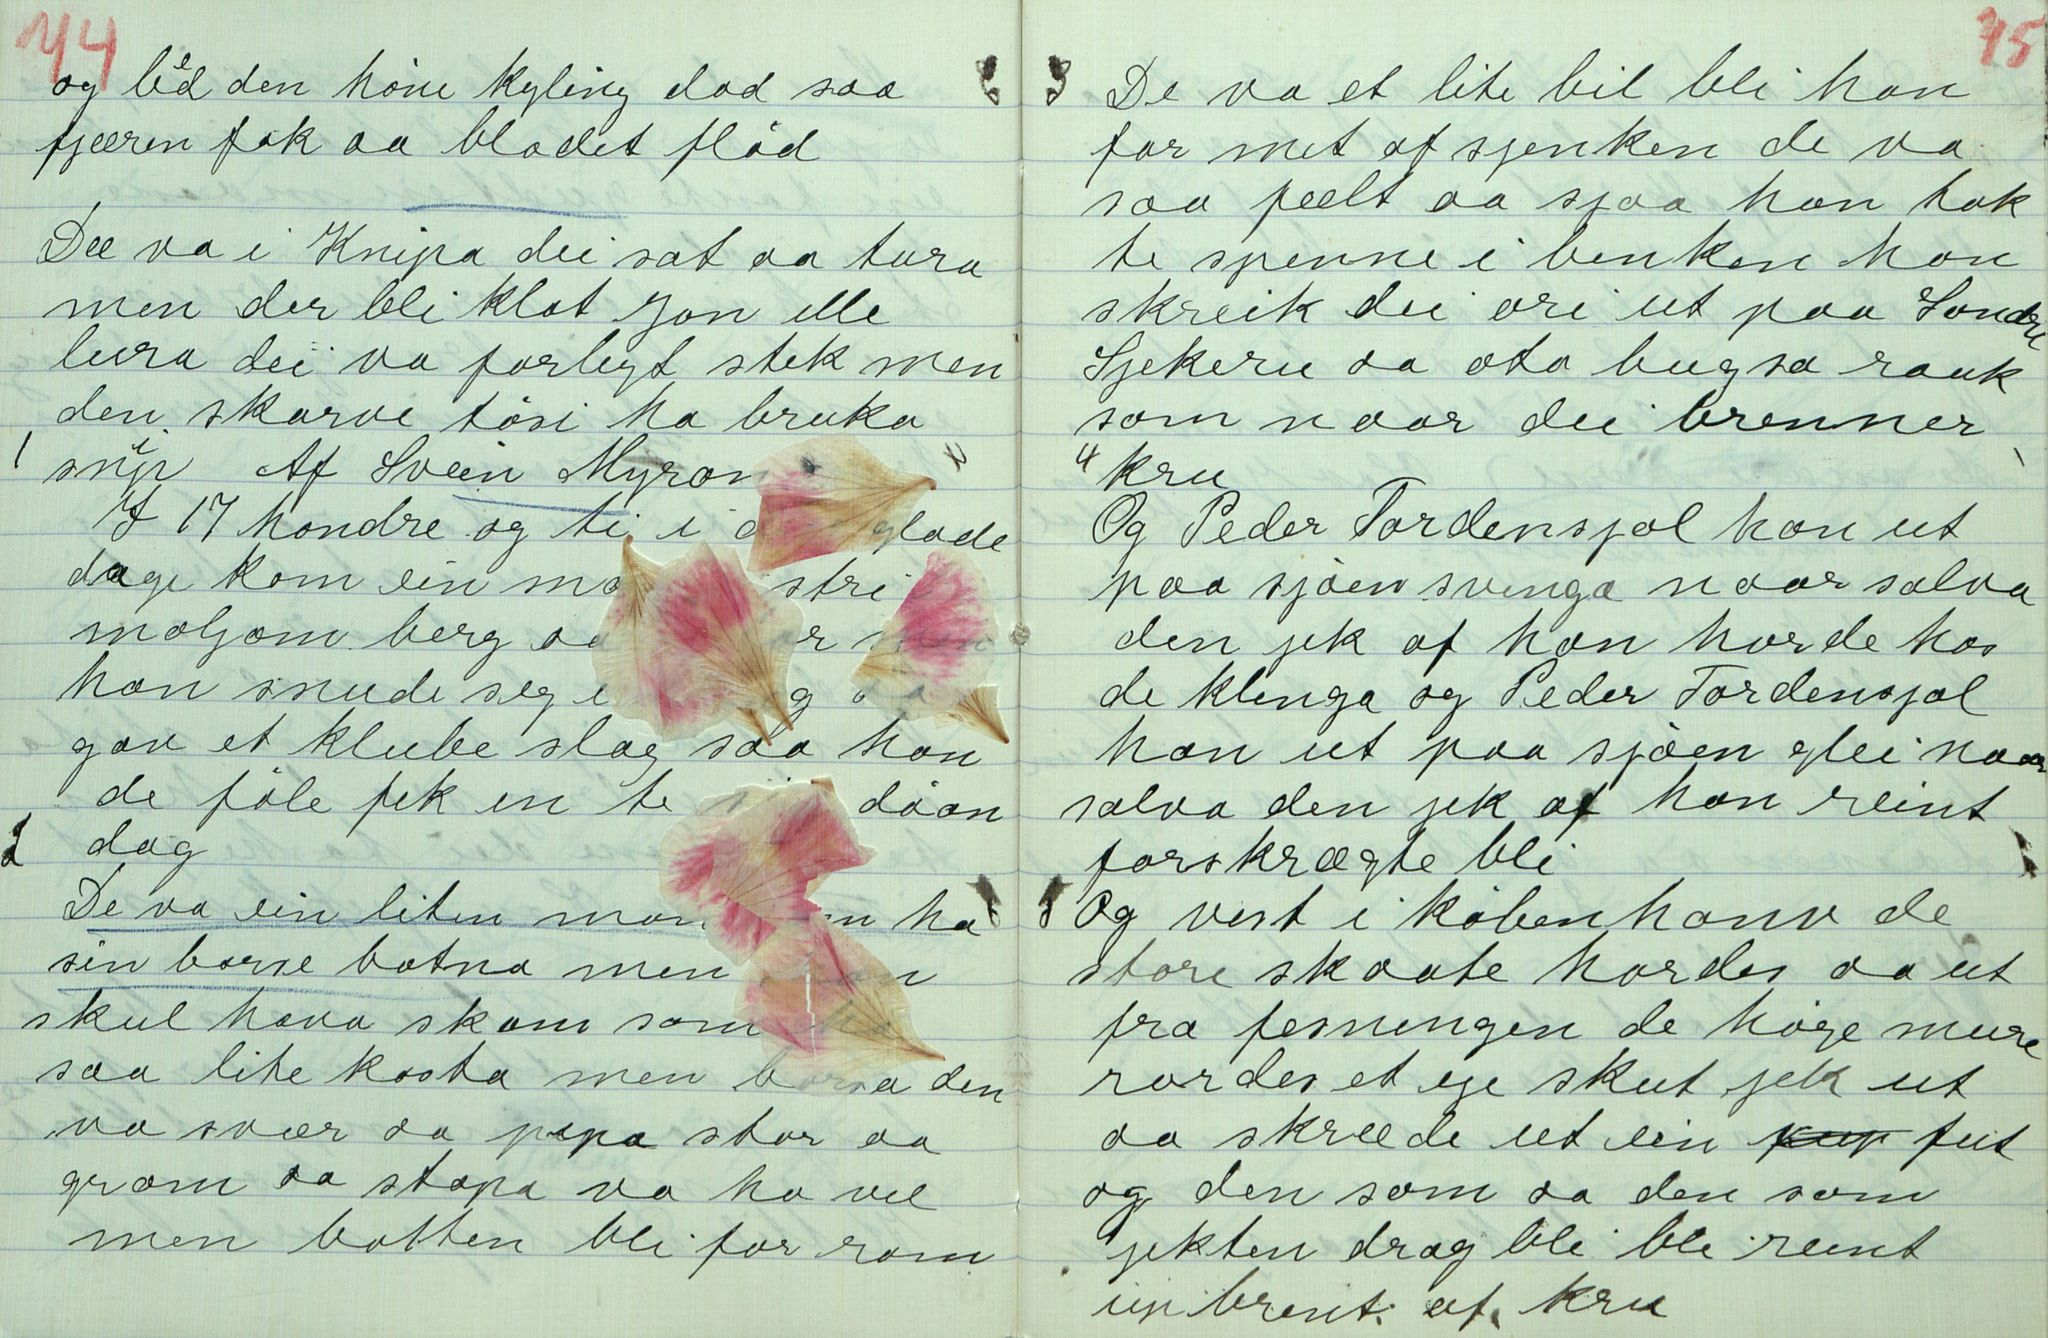 44
og lèd den höne kyling dod saa
fjæren fok aa blodet flöd
Dee va i Knipa dei sat aa tura
men der bli klat Jon ille
lura dei va forligt stek men
den skarve tösi ha bruka
snip Af Svein Myran
I 17 hondre og ti i glade
dage kom ein stri
moljom berg aa
han snude seg i
gav et klube slag saa han
de föle fek en te döan
dag
De va ein liten man ha
sin börse botna men han
skul hava skam som ha
saa lite kosta men börsa den
va svær aa pipa stor aa
grom aa stopa va ho vel
men botten bli for rom
75
De va et lite bil bli han
for met af sjenken de va
saa feelt aa sjaa han tok
te spenne i benken han
skreik dei ori ut paa Sondre
Sjekeru aa ota bugsa rauk
som naar dei brenner
4 kru
Og Peder Tordensjol han ut
paa sjöen svinga naar salva
den jek af han horde hos
de klinga og Peder Tordensjol
han ut paa sjöen glei naar
salva den jek af han reint
forskrægte bli
Og vest i köbenhanv de
store skaate hordes aa ut
fra fesningen de höge mure
rordes et eje skut jek ut
aa skreede ut ein fut
og den som aa den som
jekten drog bli bli reint
up brent af kru